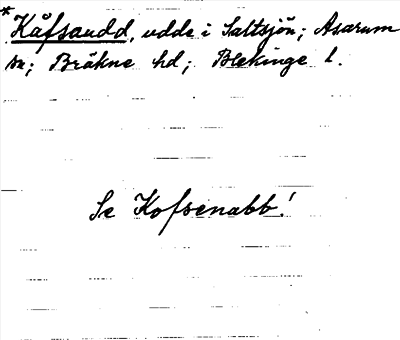 * Kåfsaudd, udde i Saltsjön; Asarum
sn; Bräkne hd; Blekinge l.
Se Kofsenabb!